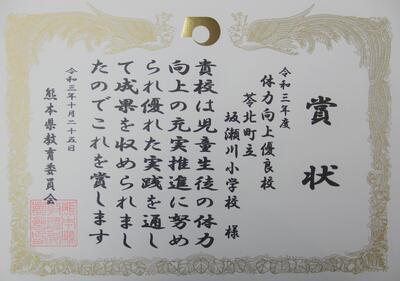 賞状
令和三年度
体力向上優良校
苓北町立
坂瀬川小学校 様
貴校は児童生徒の体力
向上の充実推進に努め
られ優れた実践を通し
て成果を収められまし
たのでこれを賞します
令和三年十月二十五日
熊本県教育委員会